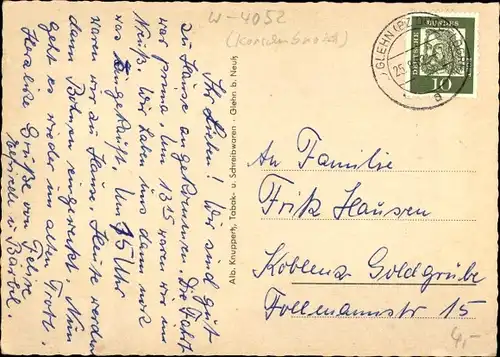 W-4052
(Korschenbroich)
GLEHN
25.
DEUTSCHE BUNDESPOST
10
a
Ihr Lieben! Wir sind gut
zu Hause angekommen. Die Fahrt
war prima. Um 13 25 waren wir in
Neuß. Wir haben uns dann noch
was eingekauft. Um 15 Uhr
waren wir zu Hause. Heute werden
dann Bohnen eingeweckt. Nun
geht es wieder im alten Trott.
Herzliche Grüße von
u Bärbel.
Alb. Knuppertz, Tabak- u. Schreibwaren · Glehn b. Neuß
An Familie
Fritz Hausen
Koblenz-Goldgrube
Follmannstr 15
4,-